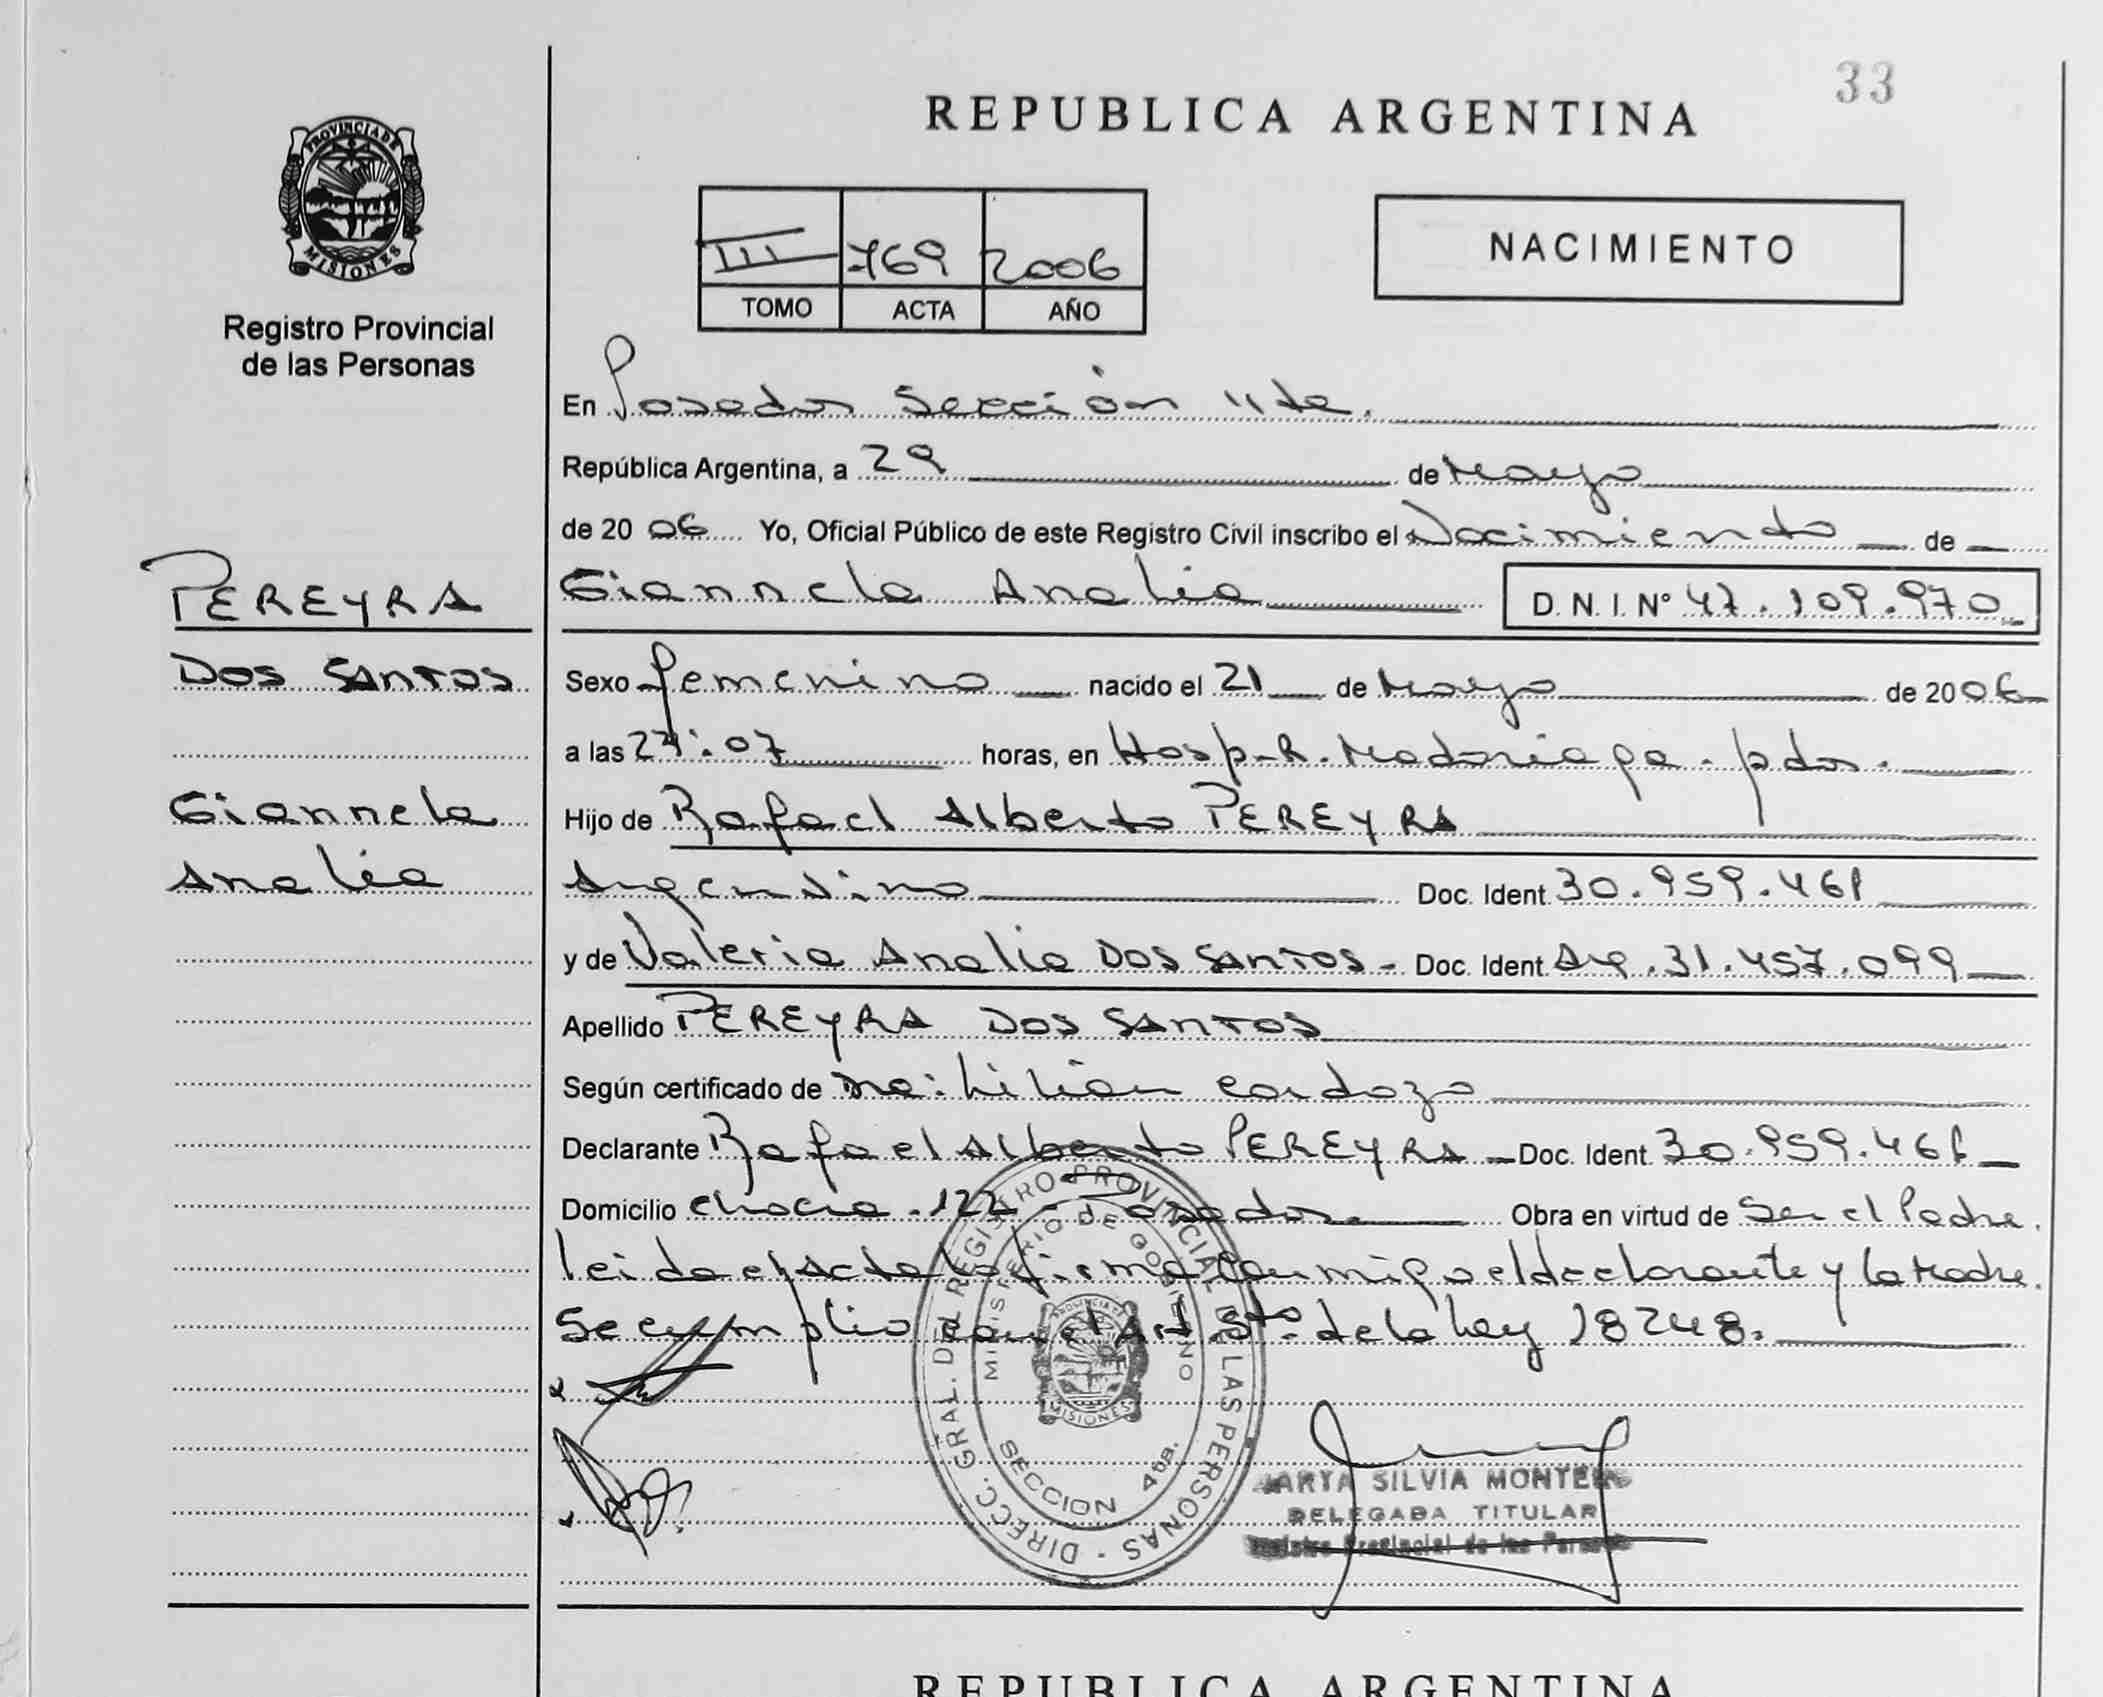 33
REPUBLICA ARGENTINA
PROVINCIA DE
MISIONES
Registro Provincial
de las Personas
III 769 2006
TOMO ACTA AÑO
NACIMIENTO
En Posadas Sección 4ta.
República Argentina, a 29 de Mayo
de 2006 Yo, Oficial Público de este Registro Civil inscribo el Nacimiento de
PEREYRA
Giannela Analia D. N. I. Nº 47.109.970
DOS SANTOS
Sexo femenino nacido el 21 de Mayo de 2006
a las 07 horas, en Hosp. R. Madariaga. pdas.
Giannela
Hijo de Rafael Alberto PEREYRA
Analia
Argentino Doc. Ident. 30.959.461
y de Valeria Analia DOS SANTOS - Doc. Ident. Arg. 31.457.099
Apellido PEREYRA DOS SANTOS
Según certificado de Lilian Cardozo
Declarante Rafael Alberto PEREYRA - Doc. Ident. 30.959.461
Domicilio chacra. 122 - Posadas. Obra en virtud de Ser el Padre.
leida el Acta la firma conmigo el declarante y la Madre.
Se cumplio con el Art. 5to. de la Ley 18248.
DIRECC. GRAL. DEL REGISTRO PROVINCIAL DE LAS PERSONAS -
MINISTERIO DE GOBIERNO
PROVINCIA DE
MISIONES
SECCION 4ta.
SILVIA
DELEGADA TITULAR
Registro Provincial de las Personas
REPUBLICA ARGENTINA